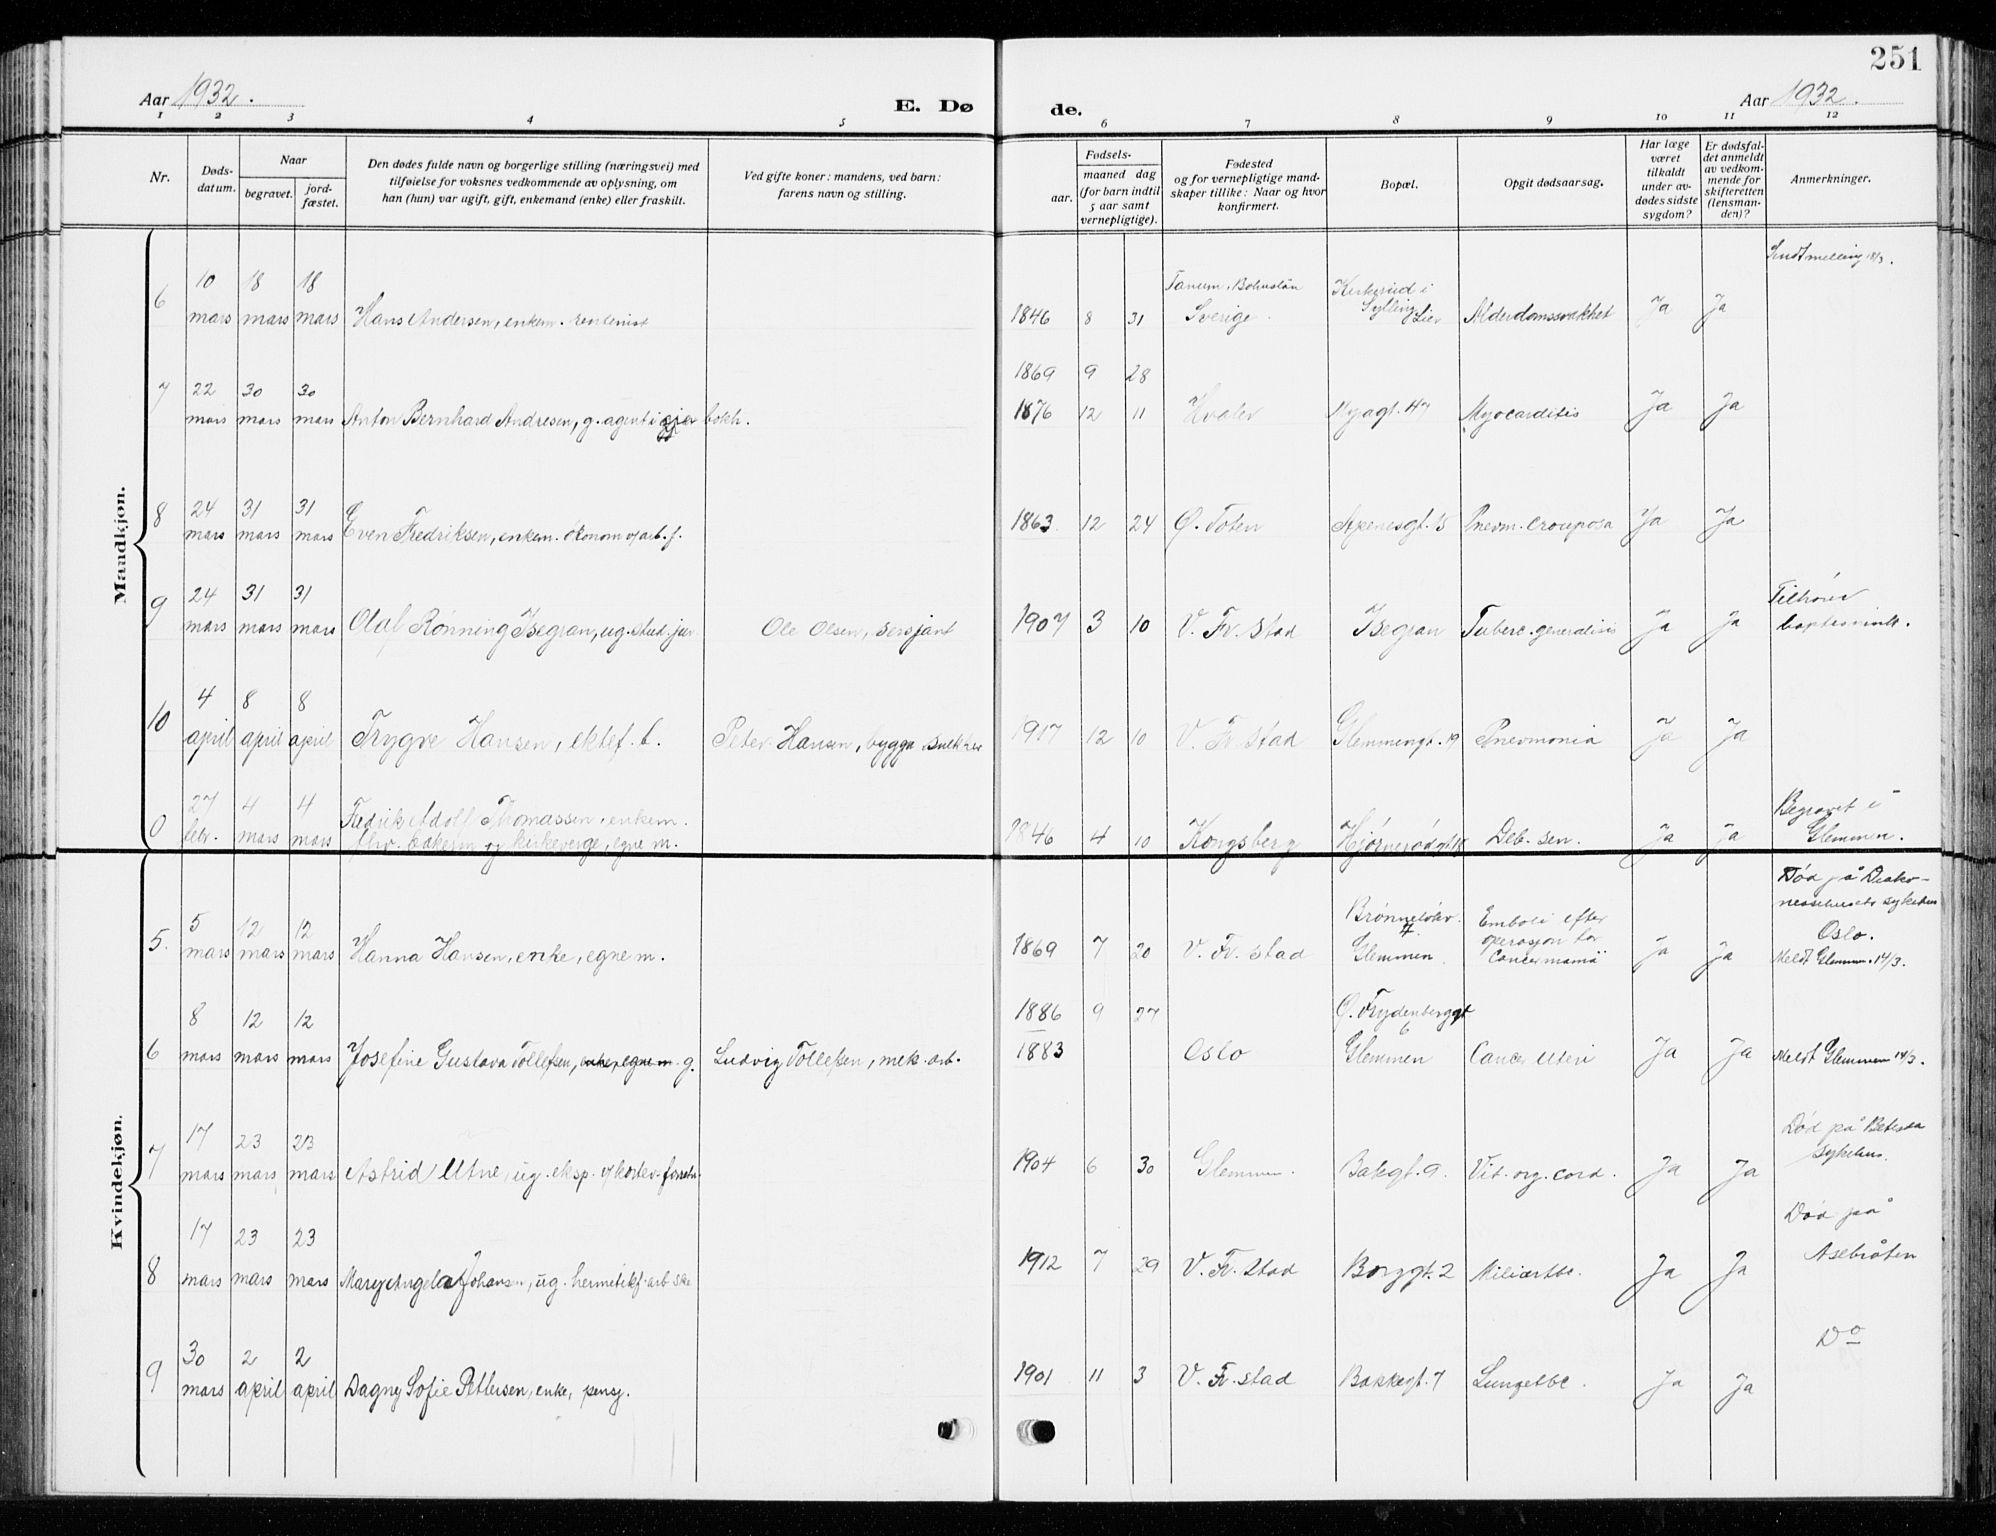 251
Aar 1932. E. Døde. Aar 1932.
1 2 3 4 5 6 7 8 9 10 11 12
Nr.
Døds-
datum.
Naar
begravet.
jord-
fæstet.
Den dødes fulde navn og borgerlige stilling (næringsvei) med
tilføielse for voksnes vedkommende av oplysning, om
han (hun) var ugift, gift, enkemand (enke) eller fraskilt.
Ved gifte koner: mandens, ved barn:
farens navn og stilling.
Fødsels-
aar.
maaned dag
(for barn indtil
5 aar samt
vernepligtige).
Fødested
og for vernepligtige mand-
skaper tillike: Naar og hvor
konfirmert.
Bopæl.
Opgit dødsaarsag.
Har læge
været
tilkaldt
under av-
dødes sidste
sygdom?
Er dødsfal-
det anmeldt
av vedkom-
mende for
skifteretten
(lensman-
den)?
Anmerkninger.
Mandkjøn.
6 10 mars 18 mars 18 mars Hans Andersen, enkem. rentenist 1846 8 31 Tanum, Bohuslän Sverige. Kirkerud i Sylling Lier Alderdomssvakhet Ja Ja melding 18/3.
1869 9 28
7 22 mars 30 mars 30 mars Anton Bernhard Andresen, g. agent i bokh. 1876 12 11 Hvaler Nyagt. 47 Myocarditis Ja Ja
8 24 mars 31 mars 31 mars Even Fredriksen, enkem. økonom v/ arb. f. 1863 12 24 Ø. Toten Apenesgt. 15 Pnevm. crouposa Ja Ja
9 24 mars 31 mars 31 mars Olaf Rønning Isegran, ug. stud. jur. Ole Olsen, sersjant 1907 3 10 V. Fr. stad Isegran Tuberc. generalisis Ja Ja Tilhører baptesmimh.
10 4 april 8 april 8 april Trygve Hansen, ektef. b. Peter Hansen, bygge snekker 1917 12 10 V. Fr. stad Glemmengt. 19 Pnevmonia Ja Ja
0 27 febr. 4 mars 4 mars Fredrik Adolf Thomassen, enkem. fhv. bakerm og kirkeverge, egne m. 1846 4 10 Kongsberg Hjørnerødgt. Deb. sen. Ja Ja Begravet i Glemmen.
Kvindekjøn.
5. 5 mars 12 mars 12 mars Hanna Hansen, enke, egne m. 1869 7 20 V. Fr. stad Brønneløkv. 7. Glemmen. Emboli efter operasjon for Cancer mamä Ja Ja Død på Diako-nissehusets sykehus Oslo. Meldt Glemmen 14/3.
1886 9 27
6 8 mars 12 mars 12 mars Josefine Gustava Tollefsen, enke, egne m. g. Ludvig Tollefsen, mek. arb. 1883 Oslo Ø. Frydenberggt 6 Glemmen Cancer Uteri Ja Ja Meldt Glemmen 14/3.
7 17 mars 23 mars 23 mars Astrid Utne, ug. eksp. v/ forretn. 1904 6 30 Glemmen. Bakegt. 9. Vit. org. cord. Ja Ja Død på Betesda sykehus.
8 17 mars 23 mars 23 mars Mary Angela Johansen, ug. hermetikf. arb.ske 1912 7 29 V. Fr. stad Borggt. 2 Miliærtbc. Ja Ja Død på Asebråten
9 30 mars 2 april 2 april Dagny Sofie Pettersen, enke, pensj. 1901 11 3 V. Fr. stad Bakkegt. 7 Lungetbc. Ja Ja Do